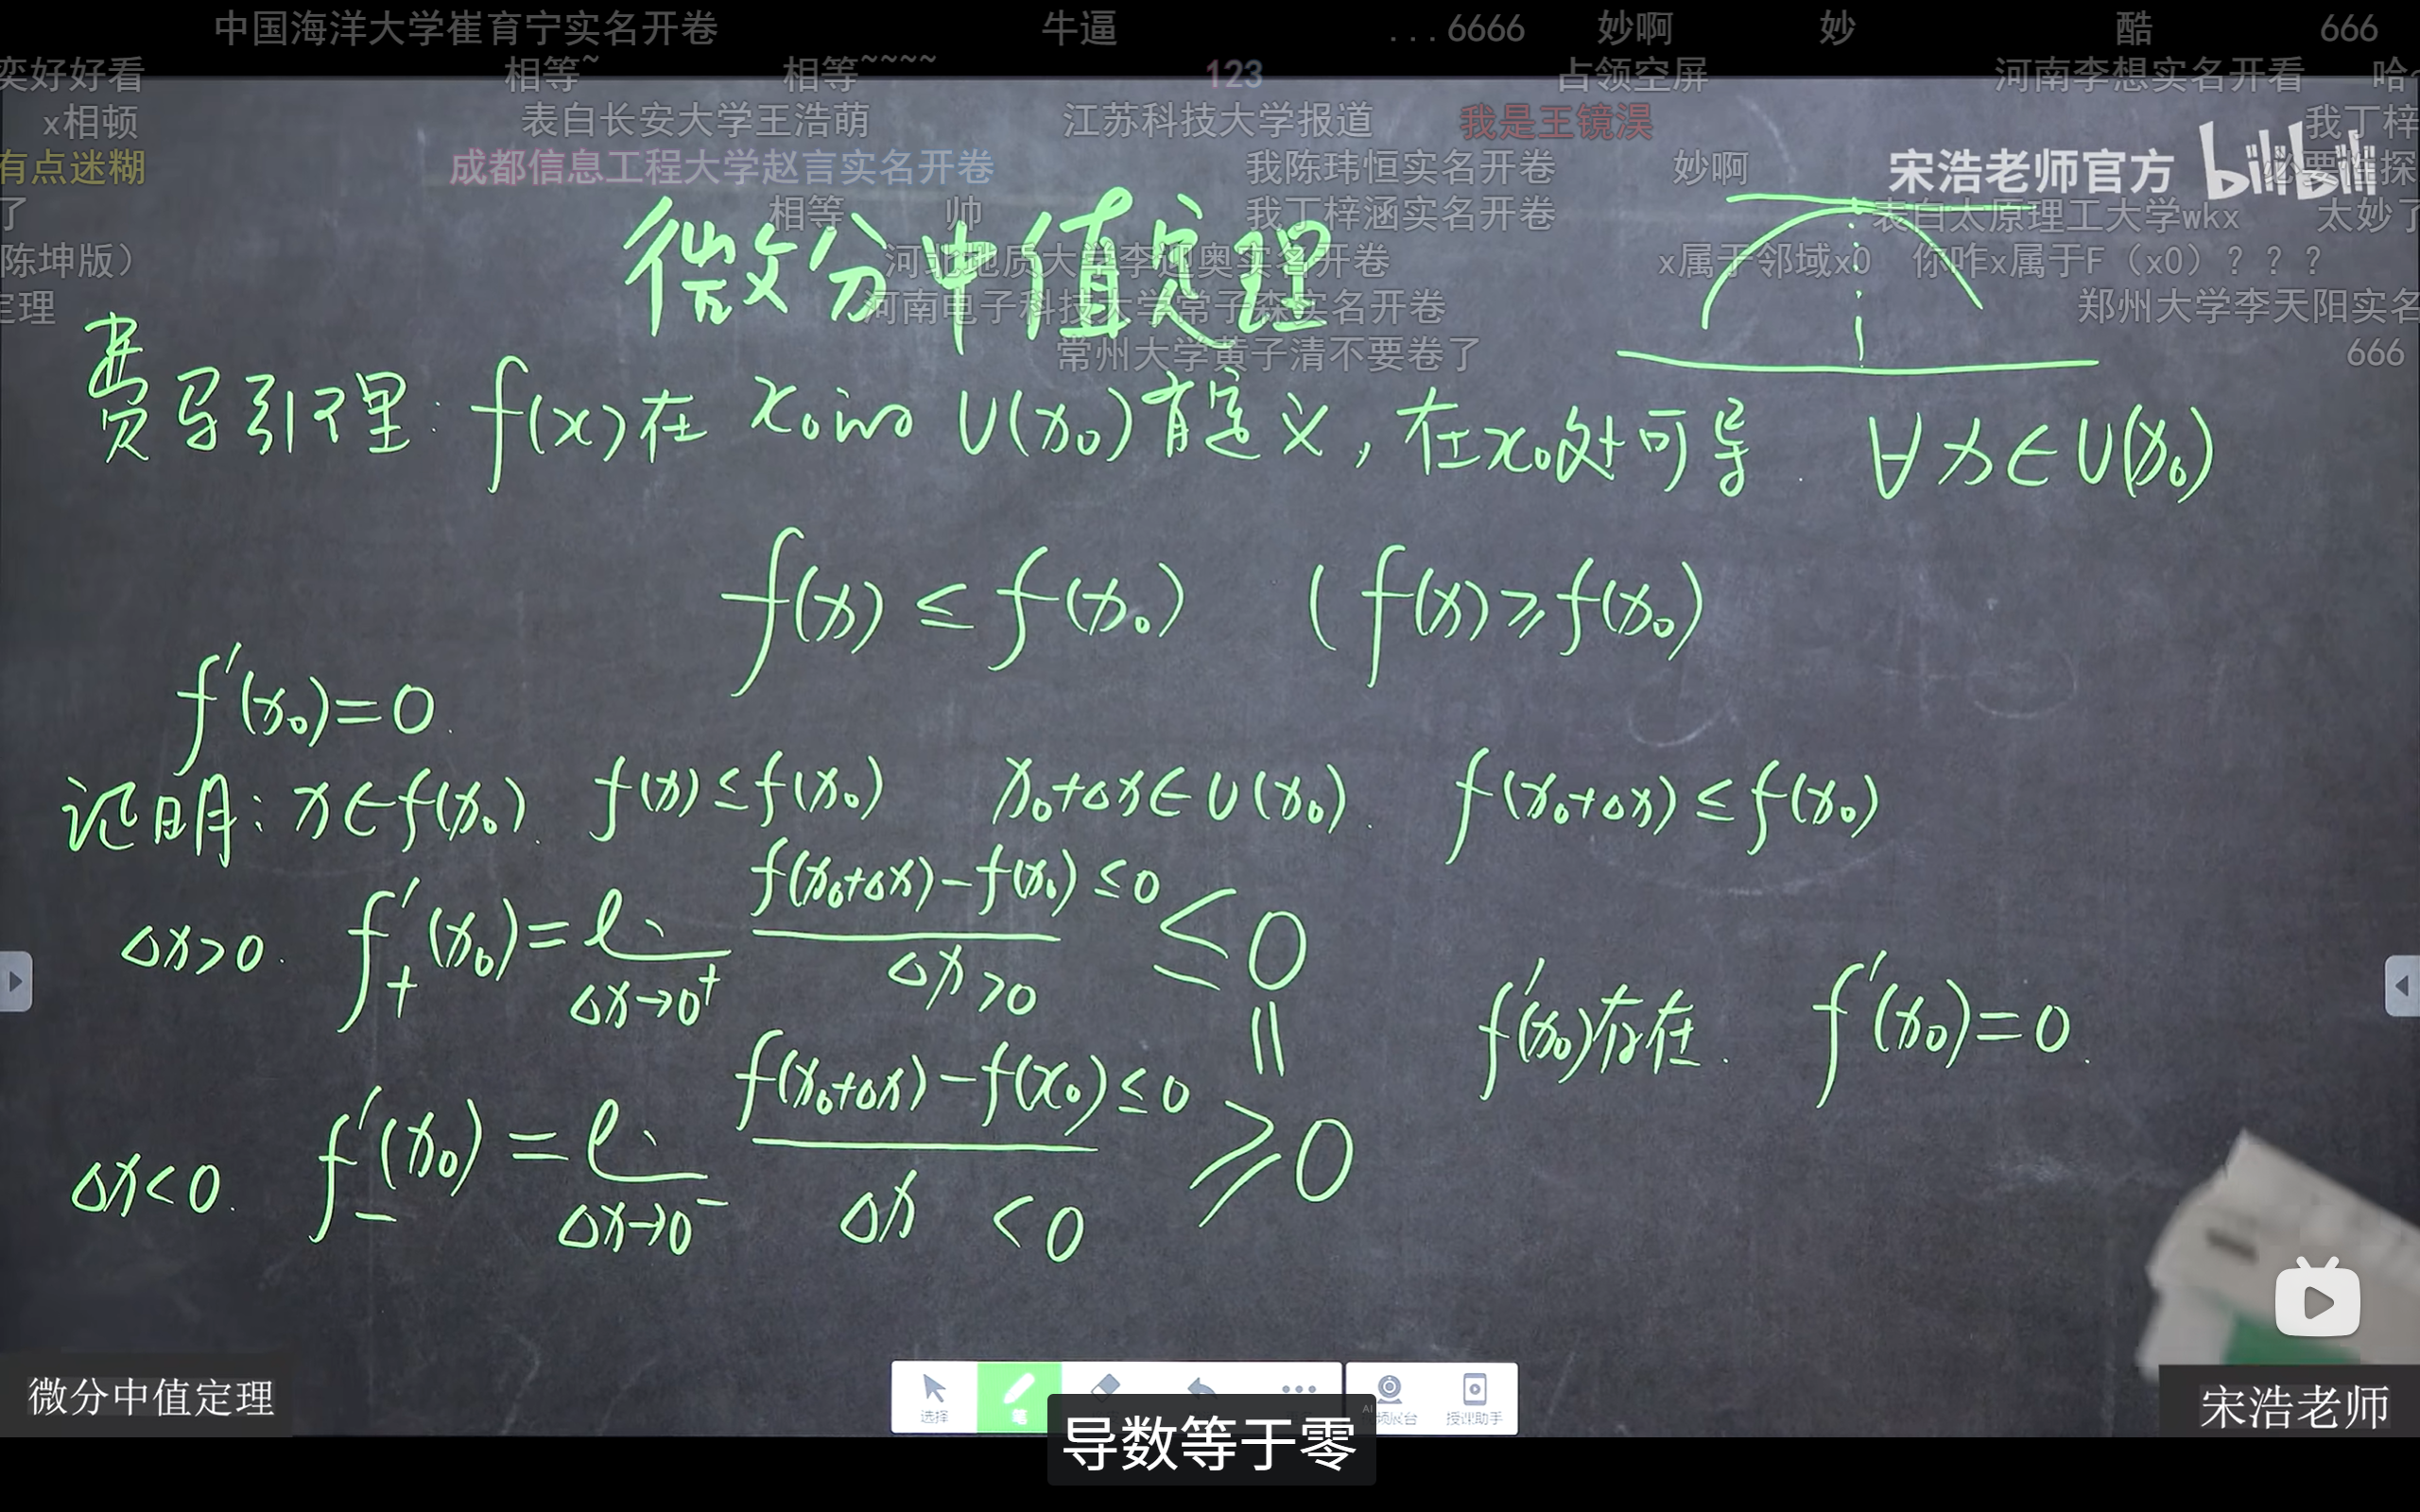 中国海洋大学崔育宁实名开卷 牛逼 ...6666 妙啊 妙 酷 666
奕好好看 相等~ 相等~~~~ 123 占领空屏 河南李想实名开看 哈
x相顿 表白长安大学王浩萌 江苏科技大学报道 我是王镜淏 我丁梓
有点迷糊 成都信息工程大学赵言实名开卷 我陈玮恒实名开卷 妙啊 宋浩老师官方 bilibili
了 相等 帅 我丁梓涵实名开卷 表白太原理工大学wkx 太妙了
微分中值定理
陈坤版） 实名开卷 x属于邻域x0 你咋x属于F（x0）？？？
定理 河南电子科技大学常子森实名开卷 郑州大学李天阳实名
常州大学黄子清不要卷了 666
费马引理: f(x)在 x₀的 U(x₀)有定义, 在x₀处可导. ∀x∈U(x₀)
f(x) ≤ f(x₀) (f(x)≥f(x₀)
f′(x₀)=0.
证明: x∈f(x₀). f(x)≤f(x₀) x₀+Δx∈U(x₀). f(x₀+Δx)≤f(x₀)
Δx>0. f′₊(x₀)= li Δx→0⁺ f(x₀+Δx)-f(x₀) ≤0 / Δx >0 ≤0
=
f′(x₀)存在. f′(x₀)=0.
Δx<0. f′₋(x₀) = li Δx→0⁻ f(x₀+Δx)-f(x₀)≤0 / Δx <0 ≥0
选择 笔 授课助手
微分中值定理 宋浩老师
导数等于零